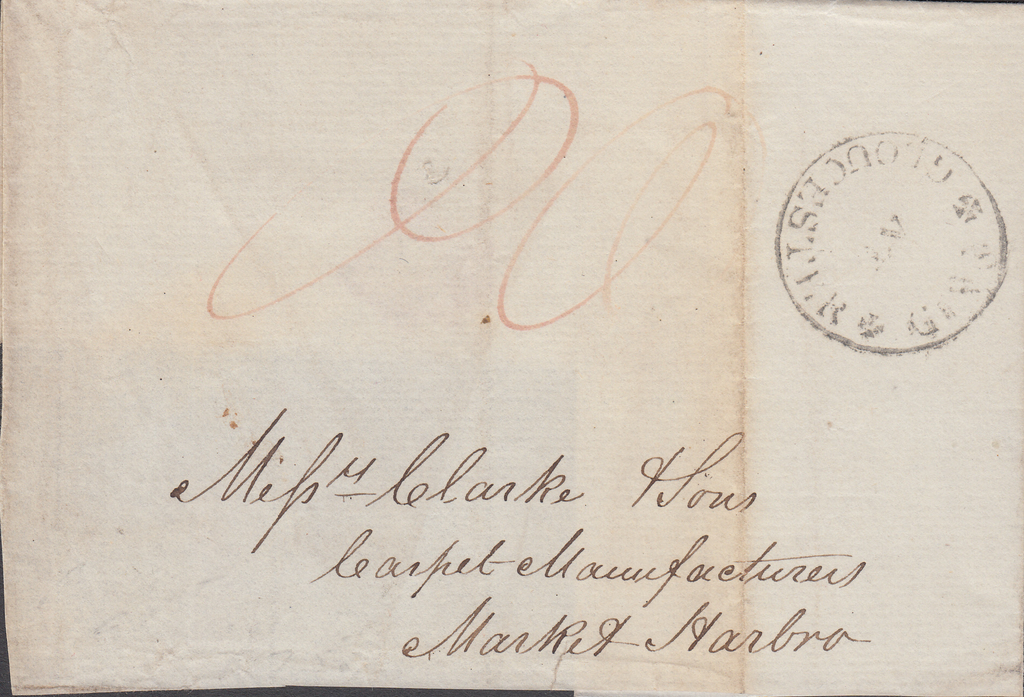 GLOUCESTER
Messrs Clarke & Sons
Carpet Manufacturers
Market Harbro